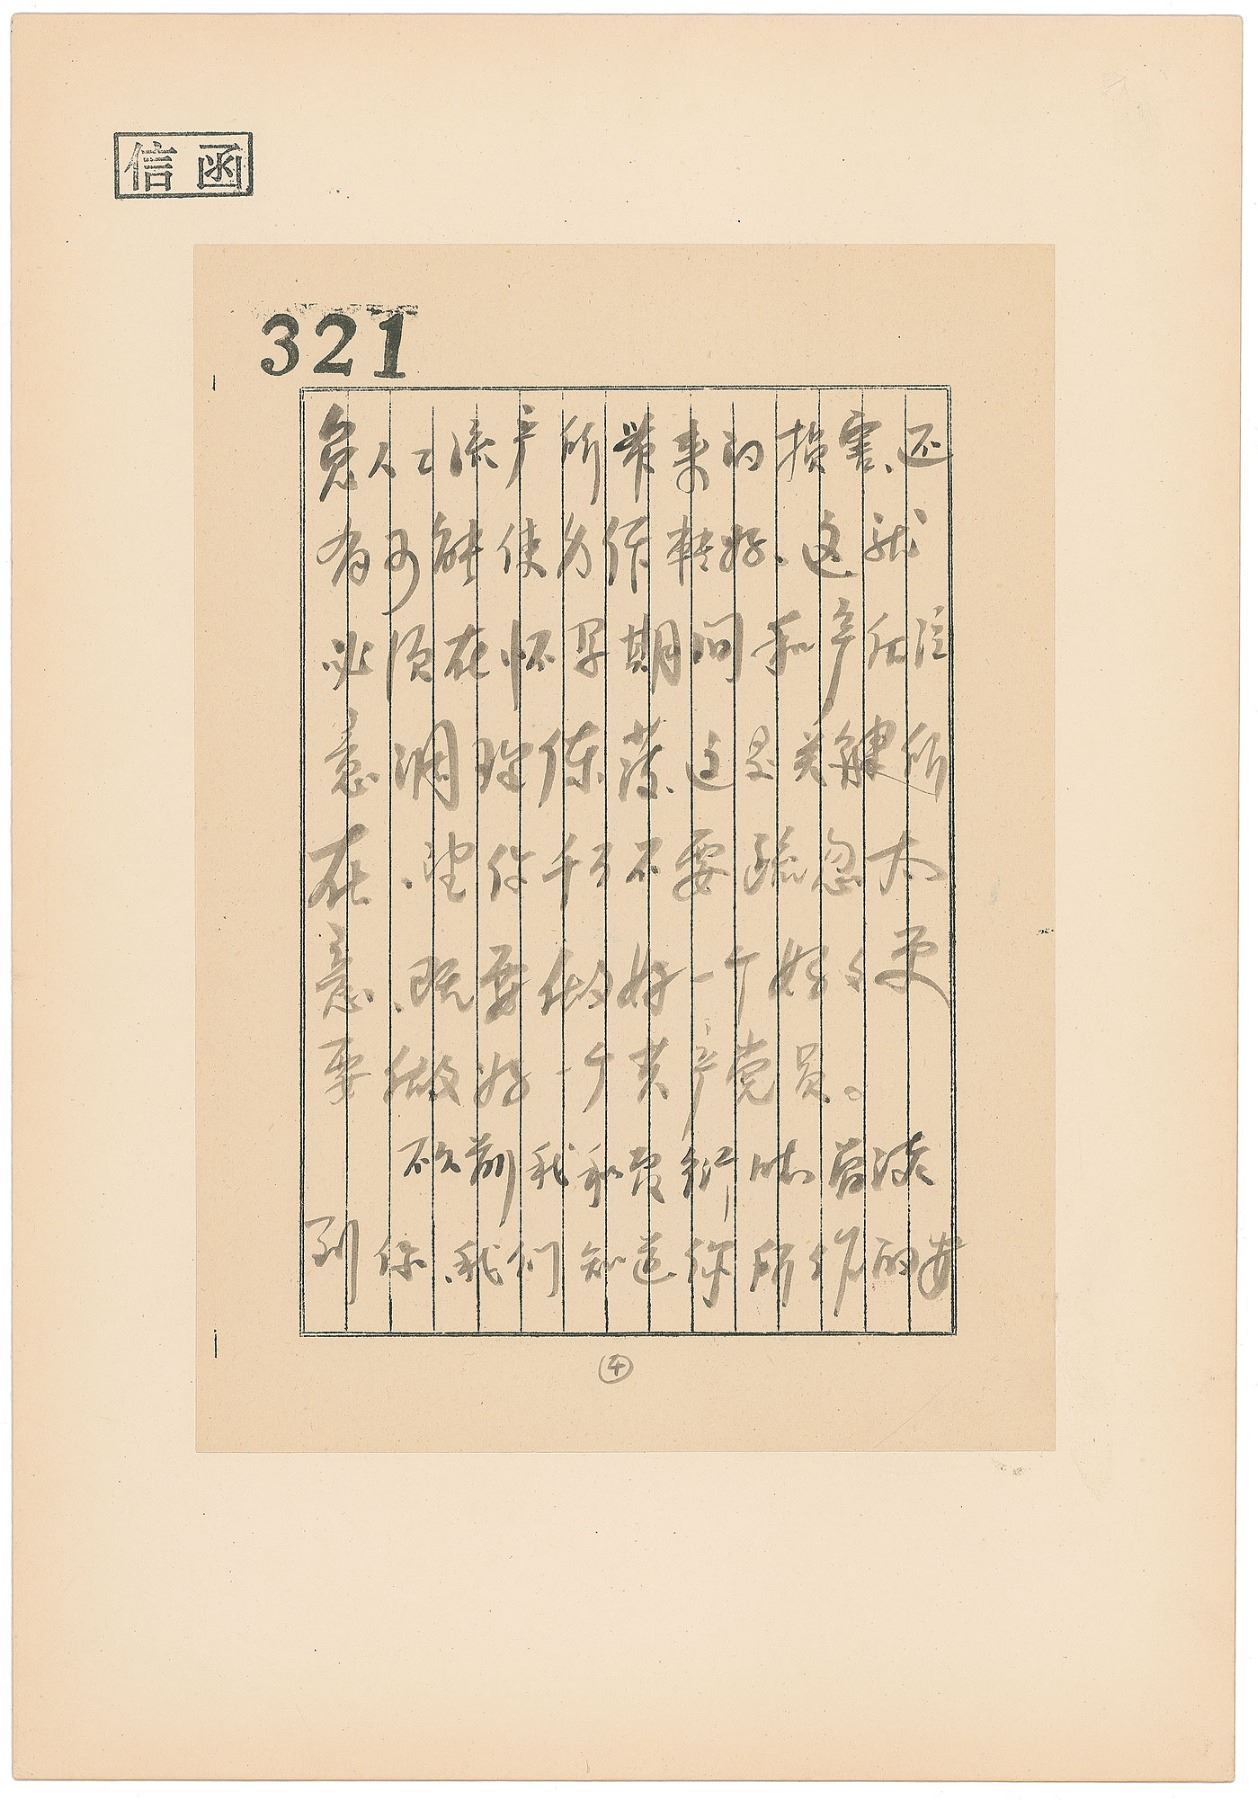 信函
321
免人工流产所带来的损害、还
有可能使身体转好、这就
必须在怀孕期间和产后注
意调理保养、这是关键所
在、望你千万不要疏忽大
意、既要做好一个妈妈更
要做好一个共产党员。
不久前我和曾
到你、我们知道你所作的安
④